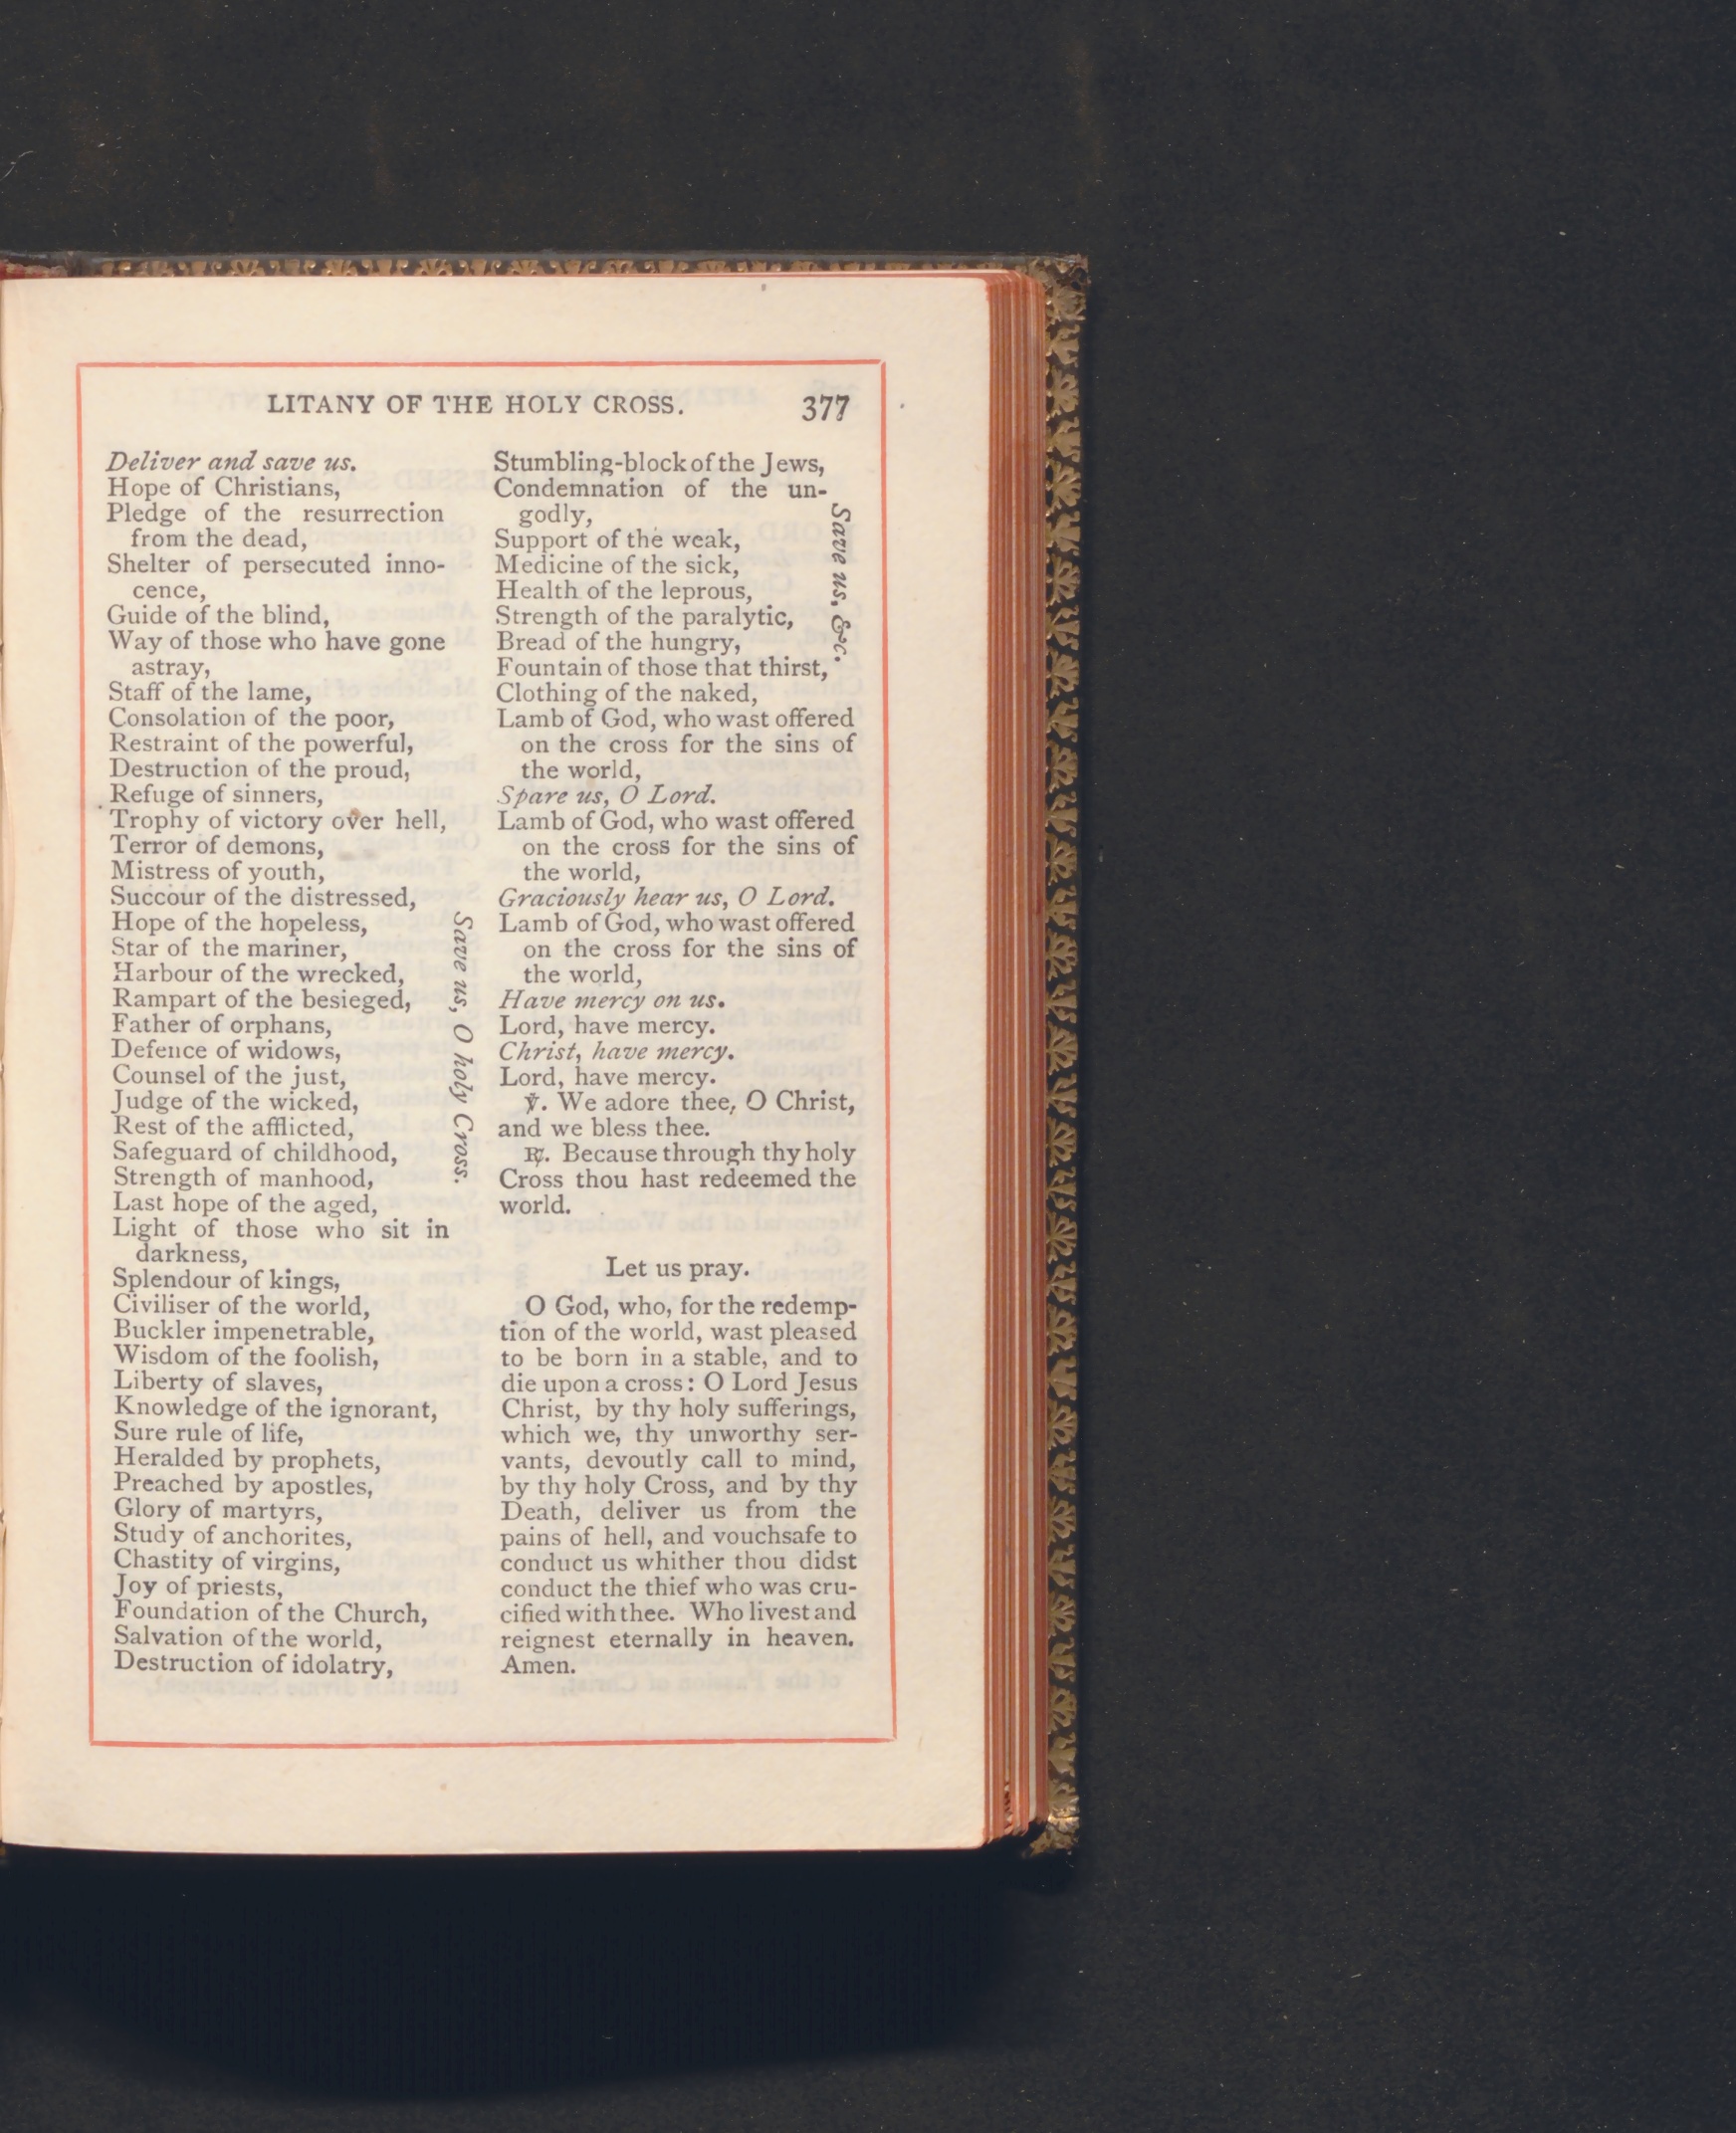 LITANY OF THE HOLY CROSS. 377
Deliver and save us.
Hope of Christians,
Pledge of the resurrection
from the dead,
Shelter of persecuted inno-
cence,
Guide of the blind,
Way of those who have gone
astray,
Staff of the lame,
Consolation of the poor,
Restraint of the powerful,
Destruction of the proud,
Refuge of sinners,
Trophy of victory over hell,
Terror of demons,
Mistress of youth,
Succour of the distressed,
Hope of the hopeless,
Star of the mariner,
Harbour of the wrecked,
Rampart of the besieged,
Father of orphans,
Defence of widows,
Counsel of the just,
Judge of the wicked,
Rest of the afflicted,
Safeguard of childhood,
Strength of manhood,
Last hope of the aged,
Light of those who sit in
darkness,
Splendour of kings,
Civiliser of the world,
Buckler impenetrable,
Wisdom of the foolish,
Liberty of slaves,
Knowledge of the ignorant,
Sure rule of life,
Heralded by prophets,
Preached by apostles,
Glory of martyrs,
Study of anchorites,
Chastity of virgins,
Joy of priests,
Foundation of the Church,
Salvation of the world,
Destruction of idolatry,
Save us, O holy Cross.
Stumbling-block of the Jews,
Condemnation of the un-
godly,
Support of the weak,
Medicine of the sick,
Health of the leprous,
Strength of the paralytic,
Bread of the hungry,
Fountain of those that thirst,
Clothing of the naked,
Save us, &c.
Lamb of God, who wast offered
on the cross for the sins of
the world,
Spare us, O Lord.
Lamb of God, who wast offered
on the cross for the sins of
the world,
Graciously hear us, O Lord.
Lamb of God, who wast offered
on the cross for the sins of
the world,
Have mercy on us.
Lord, have mercy.
Christ, have mercy.
Lord, have mercy.
℣. We adore thee, O Christ,
and we bless thee.
℟. Because through thy holy
Cross thou hast redeemed the
world.
Let us pray.
O God, who, for the redemp-
tion of the world, wast pleased
to be born in a stable, and to
die upon a cross: O Lord Jesus
Christ, by thy holy sufferings,
which we, thy unworthy ser-
vants, devoutly call to mind,
by thy holy Cross, and by thy
Death, deliver us from the
pains of hell, and vouchsafe to
conduct us whither thou didst
conduct the thief who was cru-
cified with thee. Who livest and
reignest eternally in heaven.
Amen.